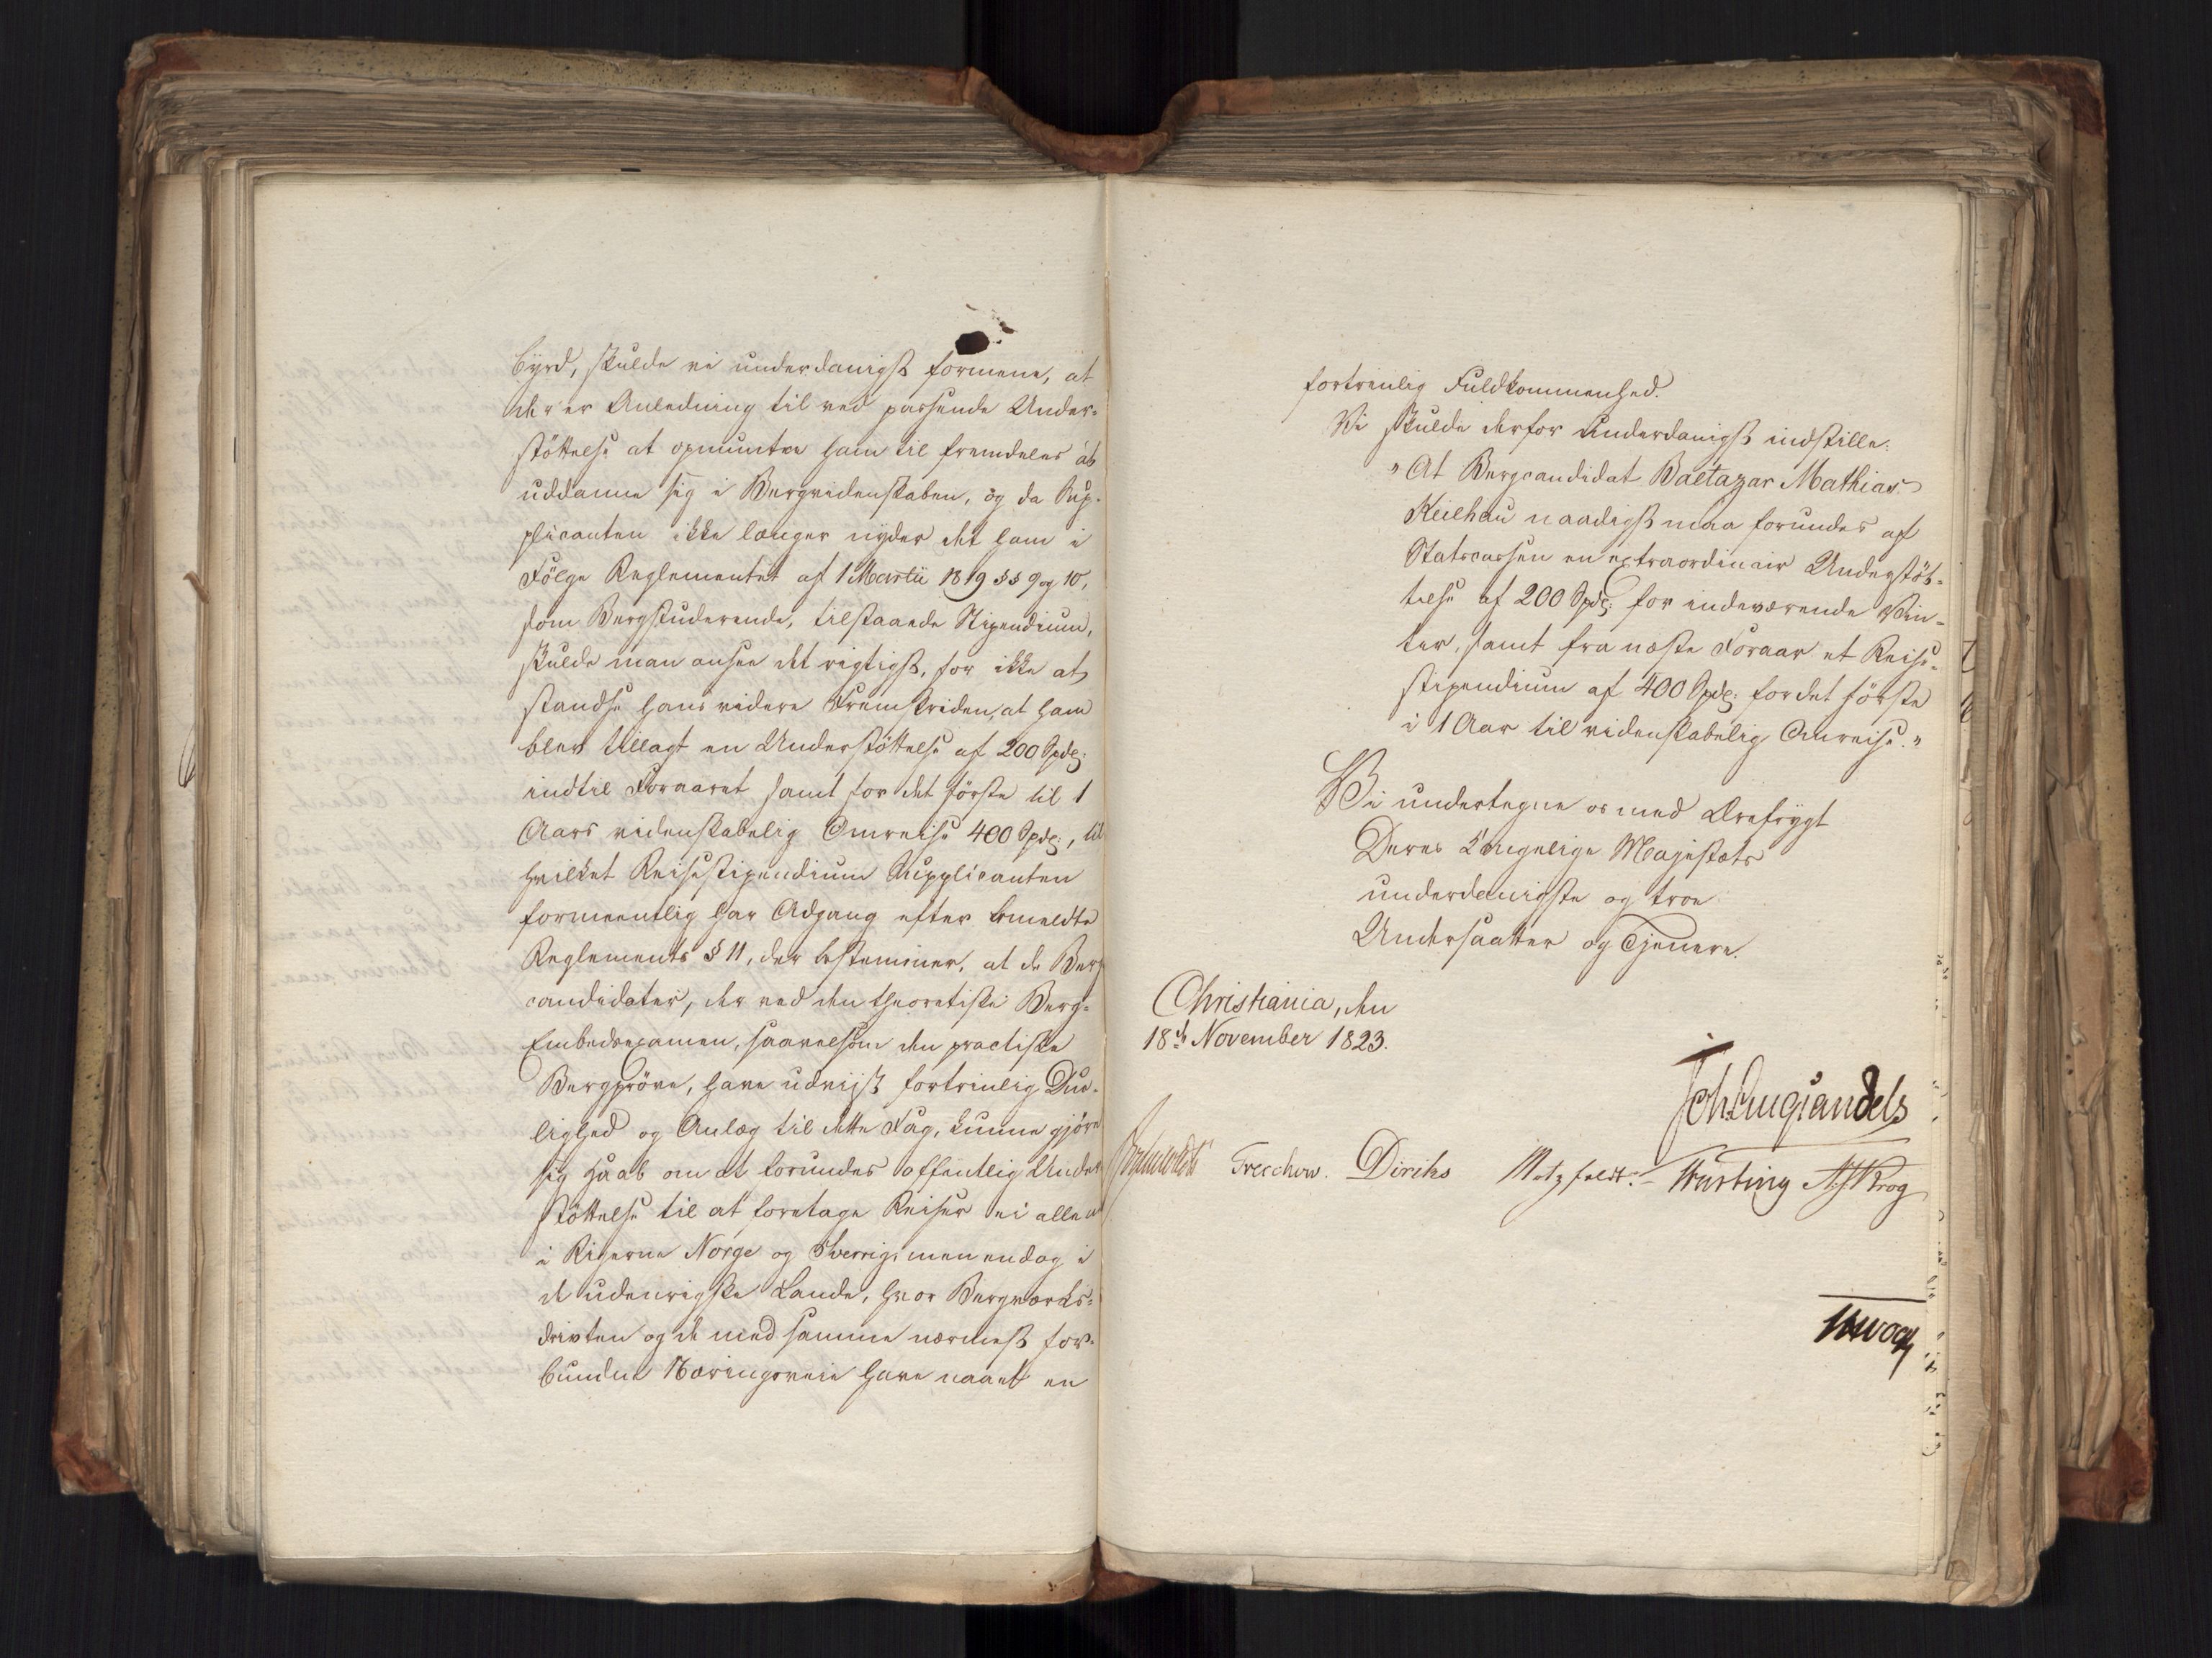 byrd, skulde vi underdanigst formene, at
der er Anledning til ved passende Under-
støttelse at opmuntre ham til fremdeles at
uddanne sig i Bergvidenskaben, og da Sup-
plicanten ikke længer nyder det ham i
Følge Reglementet af 1 Martii 1819 §§ 9 og 10,
som Bergstuderende, tilstaaede Stipendium,
skulde man ansee det rigtigst, for ikke at
standse hans videre Fremskriden, at ham
blev tillagt en Understøttelse af 200 Spdl:
indtil Foraaret samt for det første til 1
Aars videnskabelig Omreise 400 Spdl:, til
hvilket Reisestipendium Supplicanten
formeentlig har Adgang efter bemeldte
Reglements § 11, der bestemmer, at de Berg
candidater, der ved den theoretiske Berg-
Embedsexamen, saavelsom den practiske
Bergprøve, have udviist fortrinlig Due-
lighed og Anlæg til dette Fag, kunne gjøre
sig Haab om at forundes offentlig Under
støttelse til at foretage Reiser ei allene
i Rigerne Norge og Sverrig, men endog i
de udenrigske Lande, hvor Bergværks-
driften og de med samme nærmest for-
bundne Næringsveie have naaet en
fortrinlig Fuldkommenhed.
Vi skulde derfor underdanigst indstille:
"At Bergcandidat Baltazar Mathias
Keilhau naadigst maa forundes af
Statscassen en extraordinair Understøt-
telse af 200 Spdl: for indeværende Vin-
ter, samt fra næste Foraar et Reise-
stipendium af 400 Spdl: for det første
i 1 Aar til videnskabelig Omreise."
Vi undertegne os med Ærefrygt
Deres Kongelige Majestæts
underdanigste og troe
Undersaatter og Tjenere.
Christiania, den
18de November 1823.
Joh. Aug. Sandels
Sommerhielm Treschow. Diriks Motzfeldt. Fasting A. J. Krog
J H Vogt